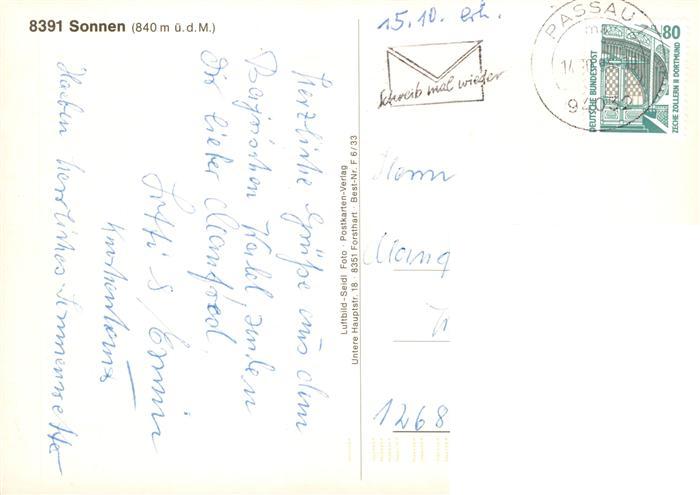 8391 Sonnen (840 m ü.d.M.)
Herzliche Grüße aus dem
Bayrischen Wald senden
Dir lieber Manfred
Haben herrliches Sommerwetter
Luftbild-Seidl Foto · Postkarten-Verlag
Untere Hauptstr. 18 · 8351 Forsthart · Best-Nr. F 6/33
15.10. erh.
Schreib mal wieder
PASSAU
94032
80
DEUTSCHE BUNDESPOST
ZECHE ZOLLERN II DORTMUND
Herrn
1268